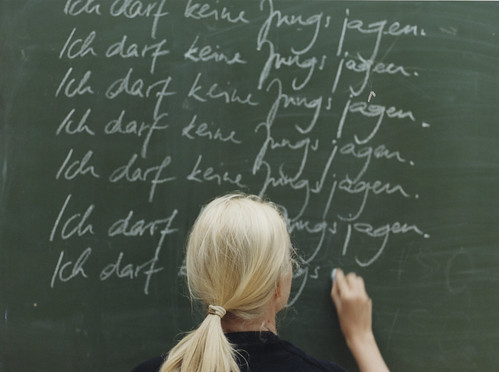 Ich darf keine Jungs jagen.
Ich darf keine Jungs jagen.
Ich darf keine Jungs jagen.
Ich darf keine Jungs jagen.
Ich darf keine Jungs jagen.
Ich darf Jungs jagen.
Ich darf